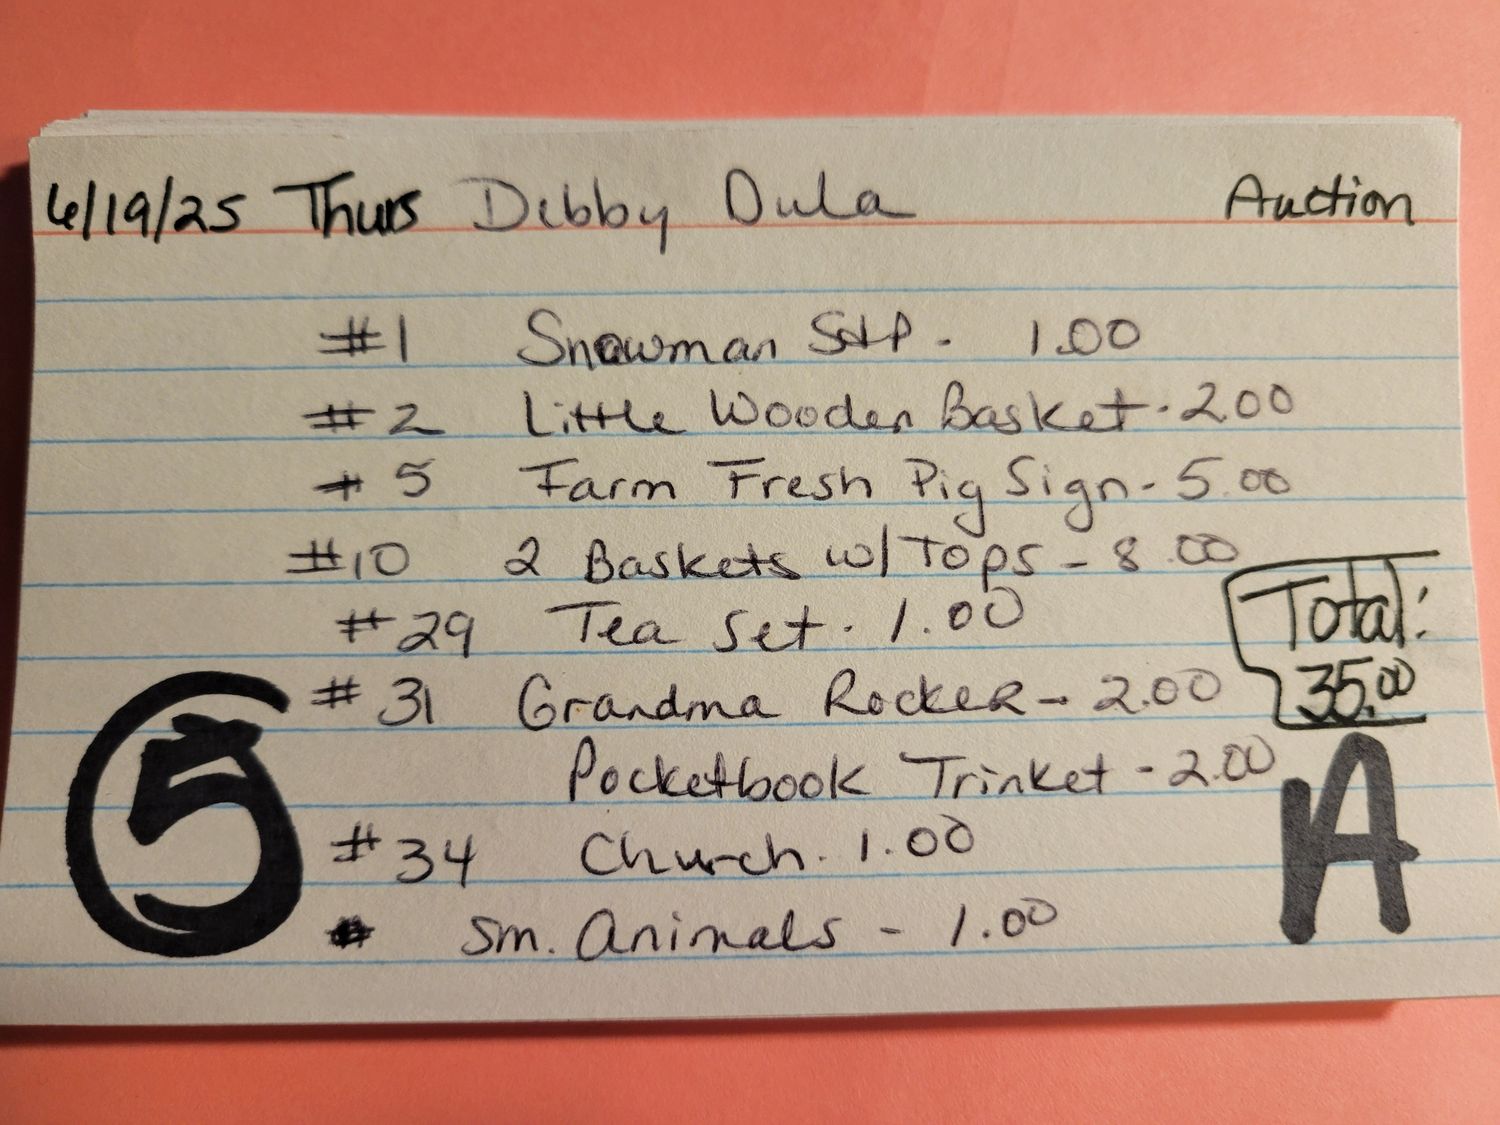 6/19/25 Thurs Debby Dula Auction
#1 Snowman S+P - 1.00
#2 Little Wooden Basket - 2.00
#5 Farm Fresh Pig Sign - 5.00
#10 2 Baskets w/Tops - 8.00
#29 Tea Set - 1.00
Total:
35.00
#31 Grandma Rocker - 2.00
Pocketbook Trinket - 2.00
#34 Church - 1.00
# Sm. Animals - 1.00
5
A